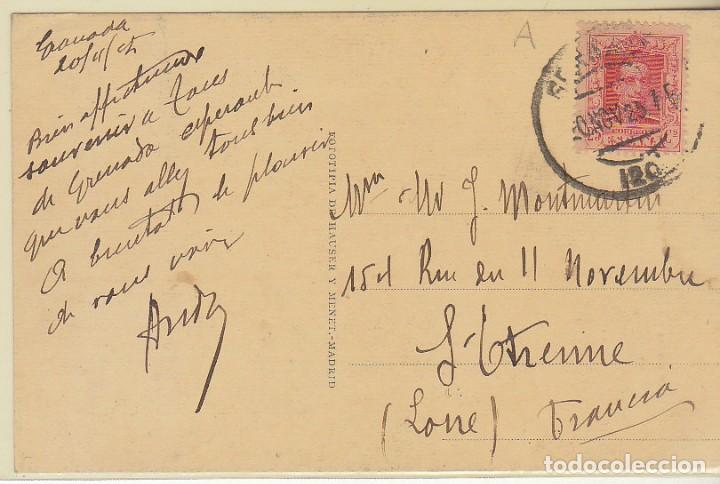 Granada
20/11/25
Bien affectueux
souvenir à tous
de Grenada esperant
que vous allez tous bien
A bientôt le plaisir
de vous voir
André
FOTOTIPIA DE HAUSER Y MENET.-MADRID
A
NOV 25
120
CORREOS
Mme Mr J. Montmartin
154 Rue du 11 Novembre
St Etienne
(Loire) Francia
todocoleccion.net